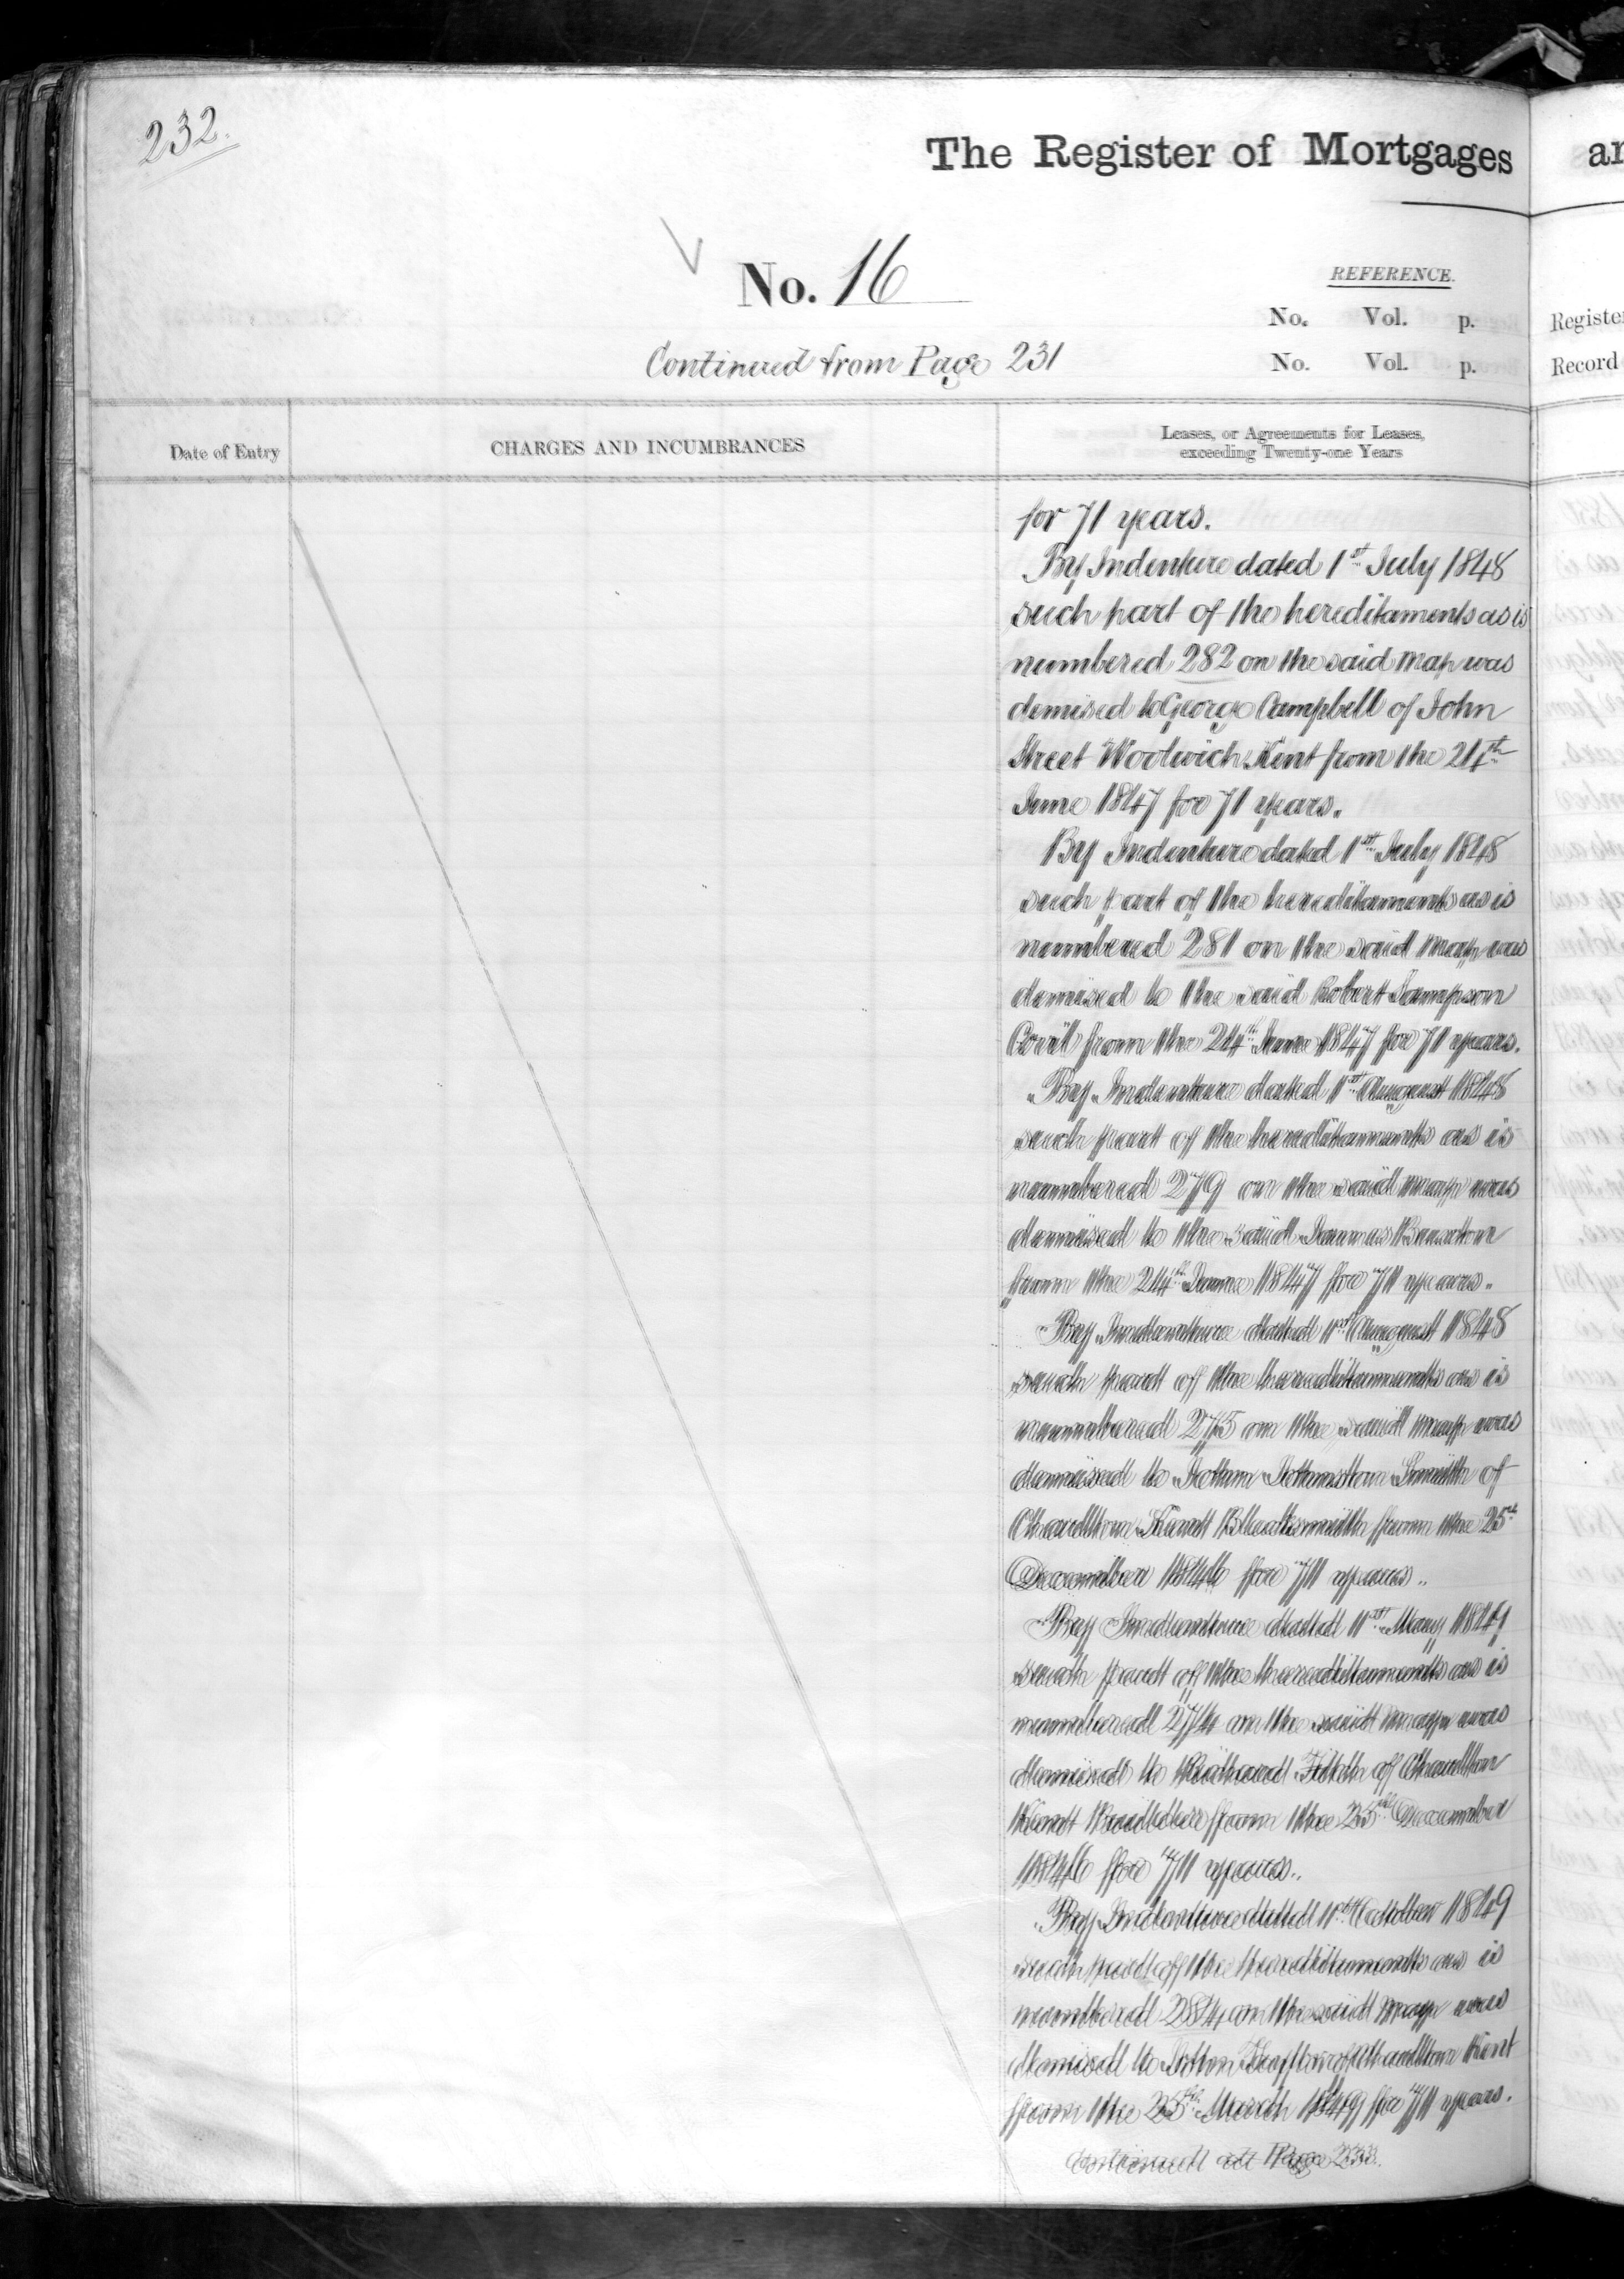 232.
The Register of Mortgages
No. 16
REFERENCE.
No. Vol. p.
No. Vol. p.
Continued from Page 231
Date of Entry
CHARGES AND INCUMBRANCES
Leases, or Agreements for Leases,
exceeding Twenty-one Years
for 71 years.
By Indenture dated 1st July 1848
such part of the hereditaments as is
numbered 282 on the said map was
demised to George Campbell of John
Street Woolwich Kent from the 24th
June 1847 for 71 years.
By Indenture dated 1st July 1848
such part of the hereditaments as is
numbered 281 on the said map was
demised to the said Robert Sampson
from the 24th June 1847 for 71 years.
By Indenture dated 1st August 1848
such part of the hereditaments as is
numbered 279 on the said map was
demised to the said James
from the 24th June 1847 for 71 years.
By Indenture dated 1st August 1848
such part of the hereditaments as is
numbered 275 on the said map was
demised to John Johnstone Smith of
Charlton Kent Blacksmith from the 25th
December 1846 for 71 years.
By Indenture dated 1st May 1849
such part of the hereditaments as is
numbered 274 on the said map was
demised to Richard Fitch of Charlton
Kent Builder from the 25th December
1846 for 71 years.
By Indenture dated 1st October 1849
such part of the hereditaments as is
numbered 284 on the said map was
demised to John of Charlton Kent
from the 25th March 1849 for 71 years.
continued at Page 233.
Register
Record